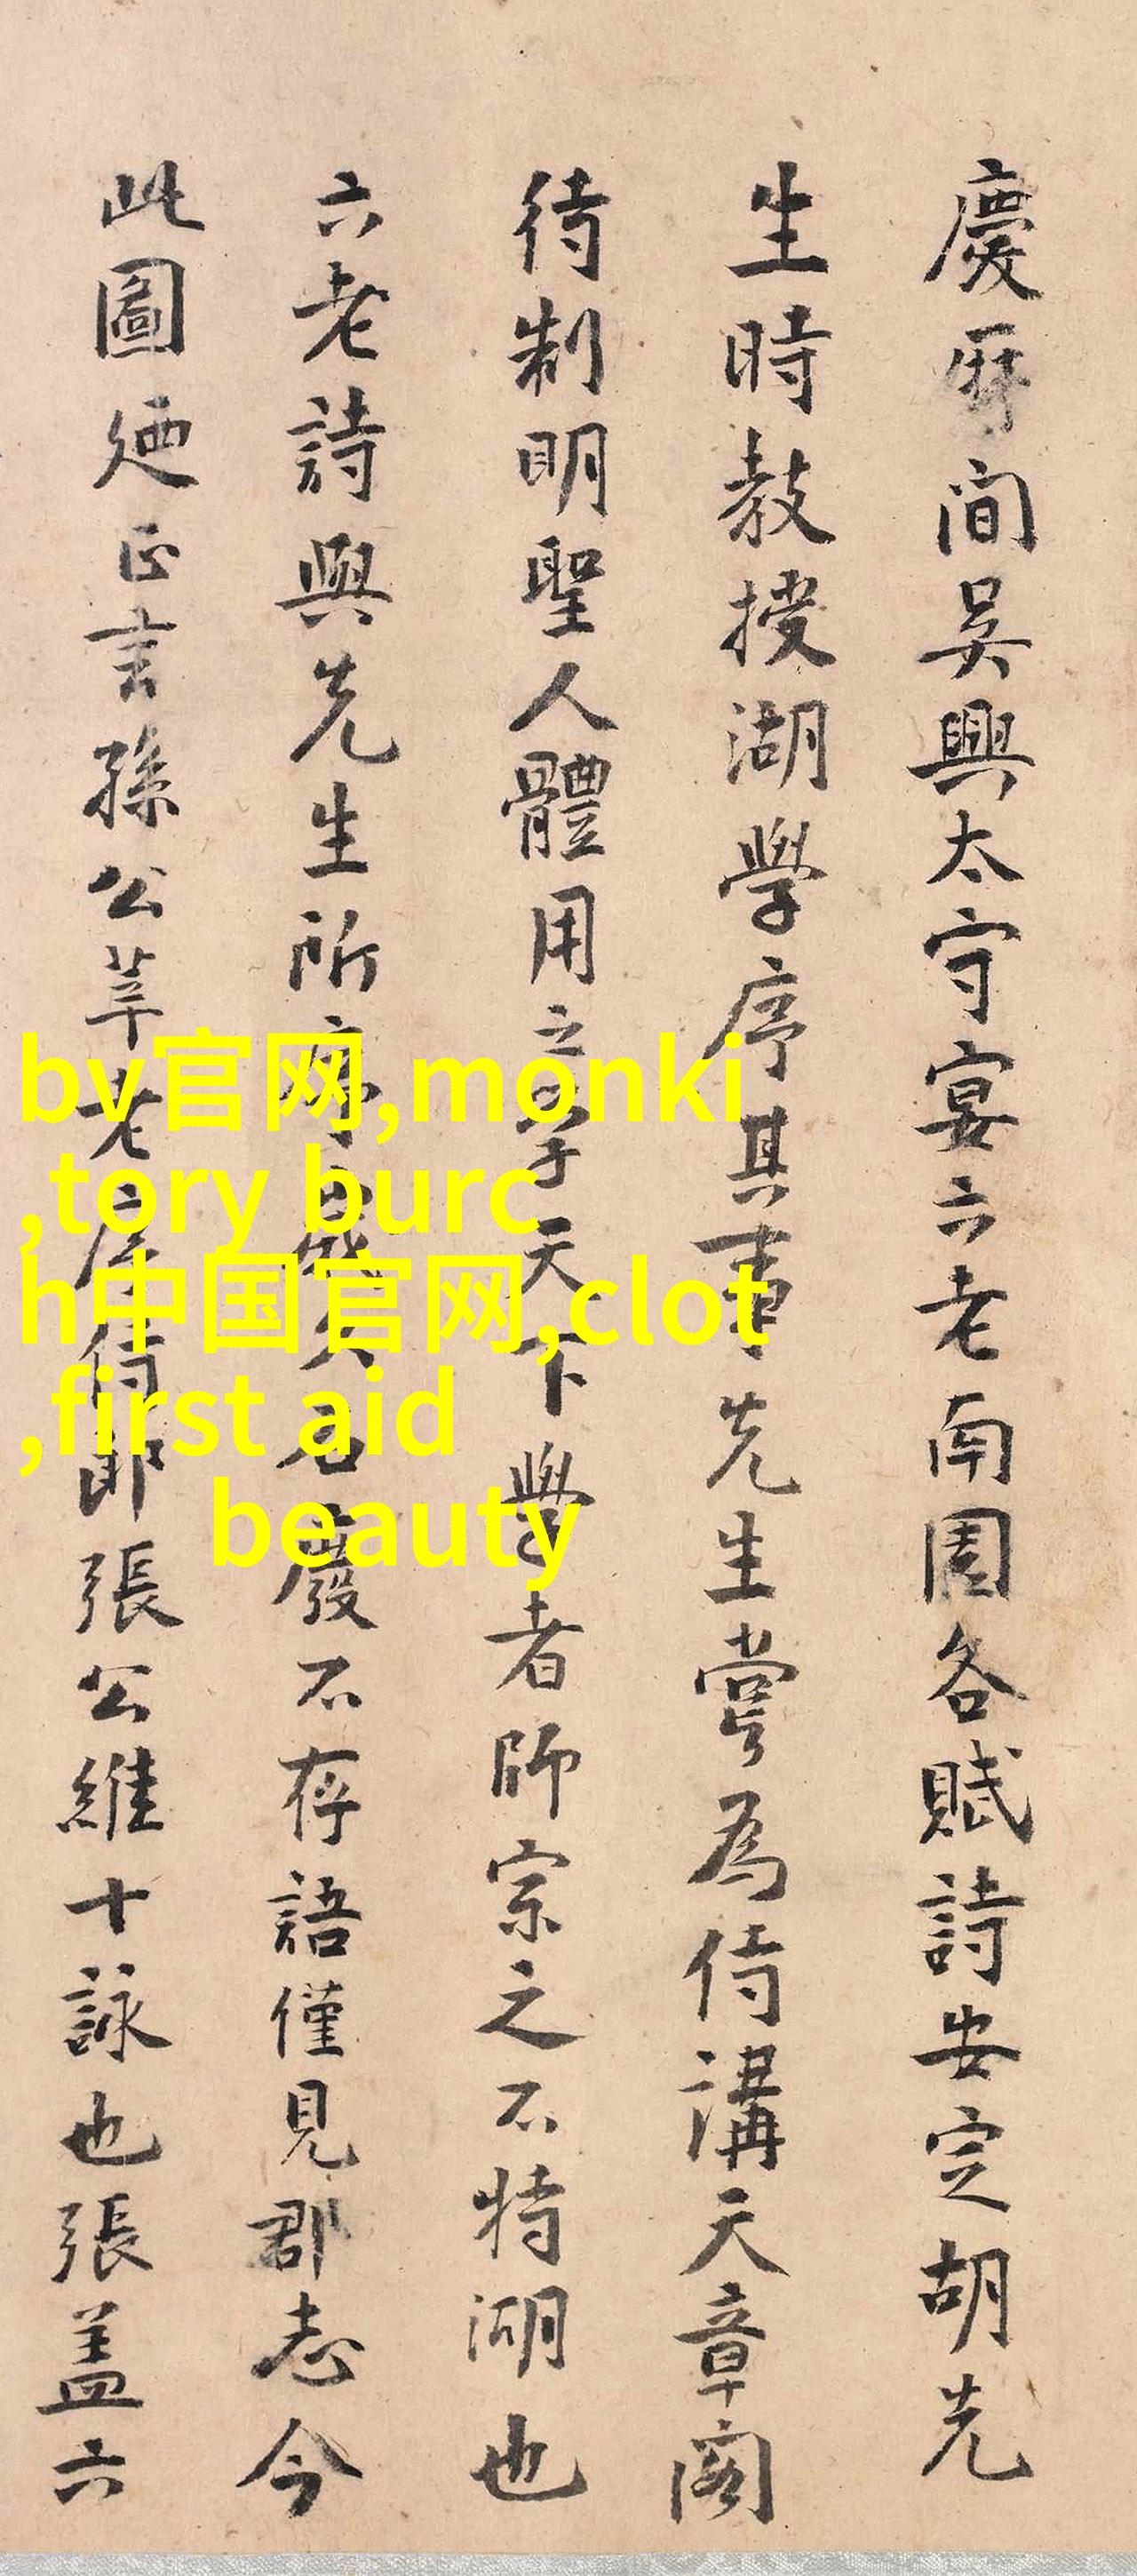 慶厯間吴興太守宴六老南園各賦詩安定胡先
生時教授湖學序其事先生嘗為侍講天章閣
待制明聖人體用之學天下學者師宗之不特湖也
六老詩與先生所序歲久石廢不存語僅見郡志今
此圖廼正言孫公莘老序侍郎張公維十詠也張盖六
by官网,monki
,tory burc
h中国官网,clot
,first aid
beauty